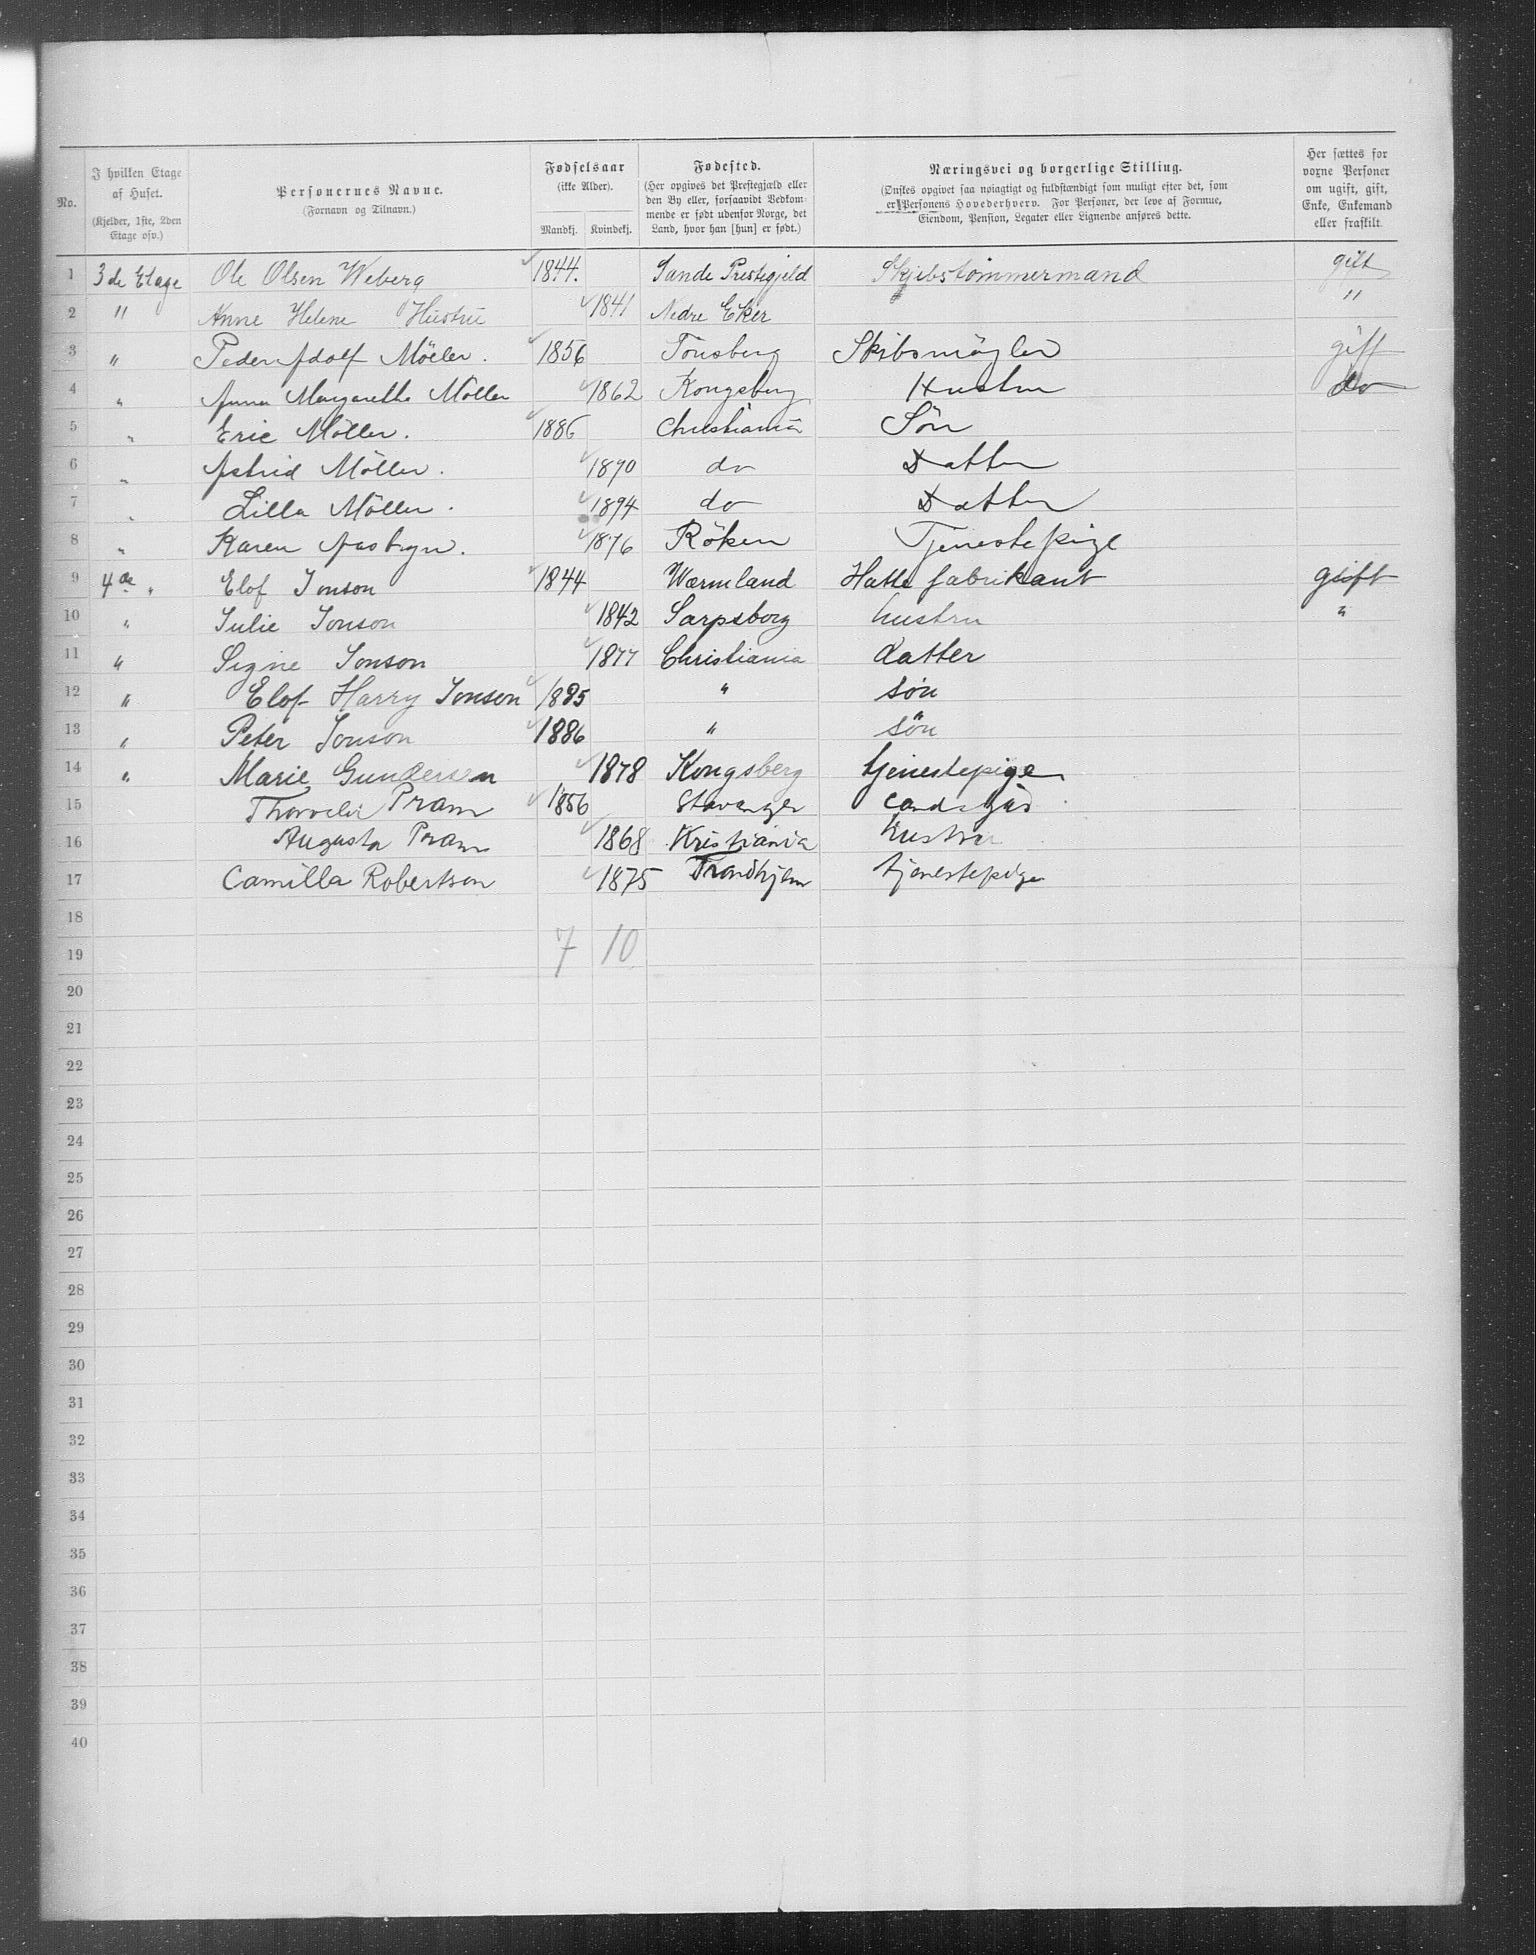 No. | I hvilken Etage af Huset. (Kjelder, 1ste, 2den Etage osv.) | Personernes Navne. (Fornavn og Tilnavn.) | Fødselsaar (ikke Alder). Mandkj. Kvindekj. | Fødested. (Her opgives det Prestegjæld eller den By eller, forsaavidt Vedkommende er født udenfor Norge, det Land, hvor han [hun] er født.) | Næringsvei og borgerlige Stilling. (Ønskes opgivet saa nøiagtigt og fuldstændigt som muligt efter det, som er Personens Hovederhverv. For Personer, der leve af Formue, Eiendom, Pension, Legater eller Lignende anføres dette. | Her sættes for vorne Personer om ugift, gift, Enke, Enkemand eller fraskilt.
1 3de Etage Ole Olsen Weberg 1844. Sande Prestegjeld Skjibstömmermand gift
2 " Anne Helene Hustru 1841 Nedre Eker "
3 " Peder Adolf Möller. 1856 Tönsberg Skibsmægler gift
4 " Anna Margarethe Möller 1862 Kongsberg Hustru do
5 " Eric Möller. 1886 Christiania Sön
6 " Astrid Möller. 1890 do Datter
7 " Lilla Möller. 1894 do Datter
8 " Karen 1876 Röken Tjenestepige
9 4de " Elof Jonson 1844 Wærmland Hatte fabrikant gift
10 " Julie Jonson 1842 Sarpsborg hustru "
11 " Signe Jonson 1877 Christiania datter
12 " Elof Harry Jonson 1885 " sön
13 " Peter Jonson 1886 " sön
14 " Marie Gundersen 1878 Kongsberg tjenestepige
15 Pram 1856 Stavanger
16 Augusta Pram 1868 Kristiania hustru
17 Camilla Robertson 1875 Trondhjem tjenestepige
18
19 7 10
20
21
22
23
24
25
26
27
28
29
30
31
32
33
34
35
36
37
38
39
40